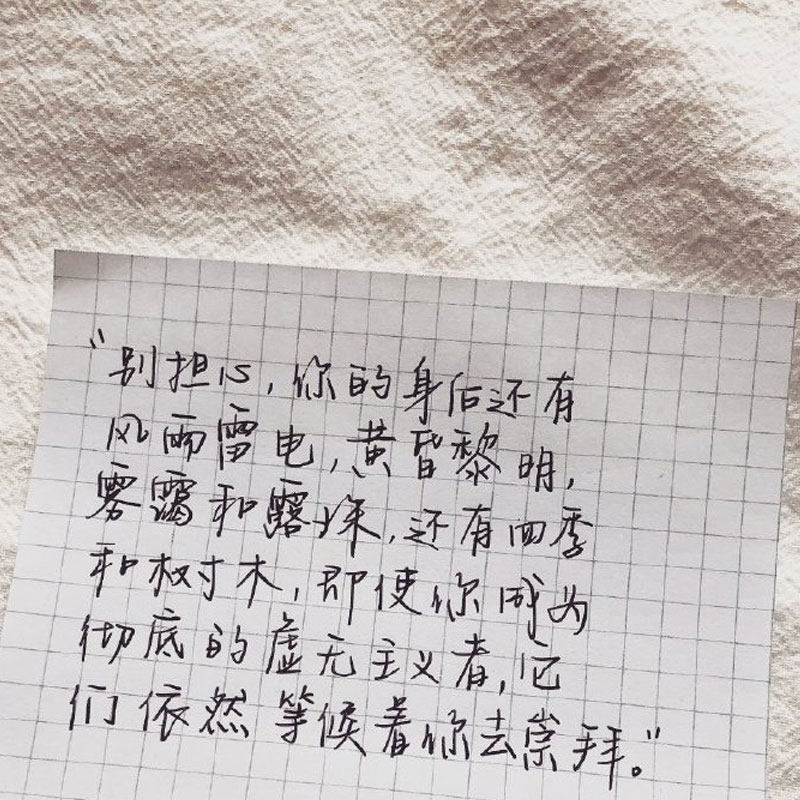 “别担心，你的身后还有
风雨雷电，黄昏黎明，
雾霭和露珠，还有四季
和树木，即使你成为
彻底的虚无主义者，它
们依然等候着你去崇拜。”